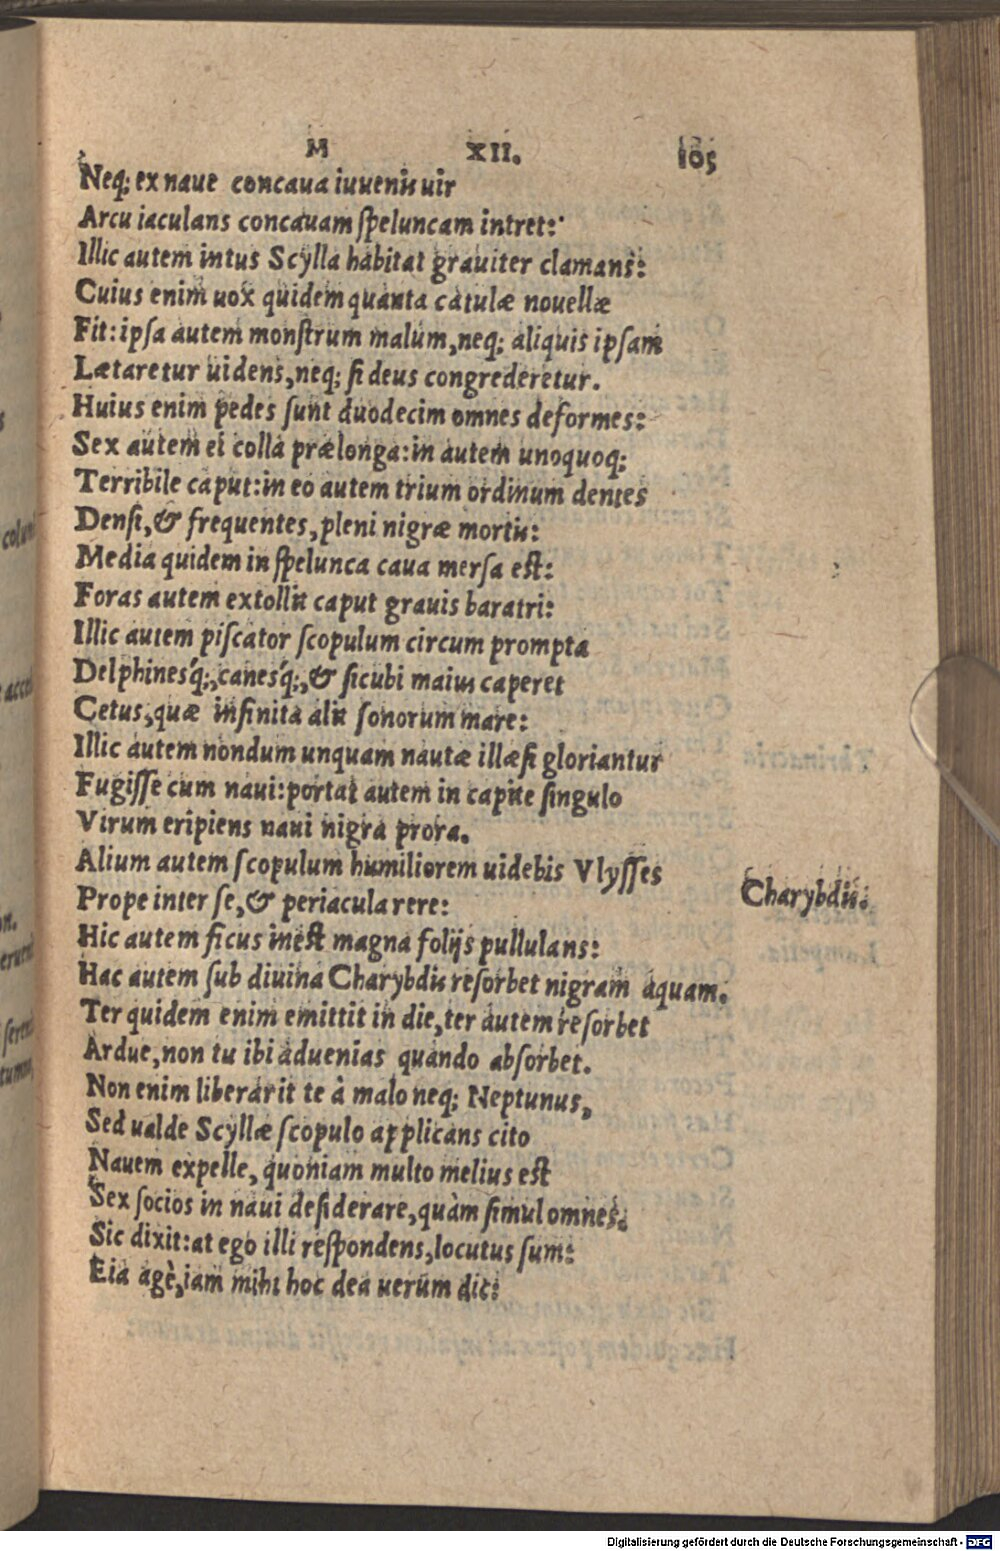 M XII. 105
Neq; ex naue concaua iuuenis uir
Arcu iaculans concauam speluncam intret:
Illic autem intus Scylla habitat grauiter clamans:
Cuius enim uox quidem quanta catulæ nouellæ
Fit: ipsa autem monstrum malum, neq; aliquis ipsam
Lætaretur uidens, neq; si deus congrederetur.
Huius enim pedes sunt duodecim omnes deformes:
Sex autem ei colla prælonga: in autem unoquoq;
Terribile caput: in eo autem trium ordinum dentes
Densi, & frequentes, pleni nigræ mortis:
Media quidem in spelunca caua mersa est:
Foras autem extollit caput grauis baratri:
Illic autem piscator scopulum circum prompta
Delphinesq́;, canesq́;, & sicubi maius caperet
Cetus, quæ infinita alit sonorum mare:
Illic autem nondum unquam nautæ illæsi gloriantur
Fugisse cum naui: portat autem in capite singulo
Virum eripiens naui nigra prora.
Alium autem scopulum humiliorem uidebis Vlysses
Charybdis.
Prope inter se, & periacula rere:
Hic autem ficus inest magna folijs pullulans:
Hac autem sub diuina Charybdis resorbet nigram aquam.
Ter quidem enim emittit in die, ter autem resorbet
Ardue, non tu ibi aduenias quando absorbet.
Non enim liberarit te à malo neq; Neptunus,
Sed ualde Scyllæ scopulo applicans cito
Nauem expelle, quoniam multo melius est
Sex socios in naui desiderare, quàm simul omnes.
Sic dixit: at ego illi respondens, locutus sum:
Eia agè, iam mihi hoc dea uerum dic:
Digitalisierung gefördert durch die Deutsche Forschungsgemeinschaft - DFG